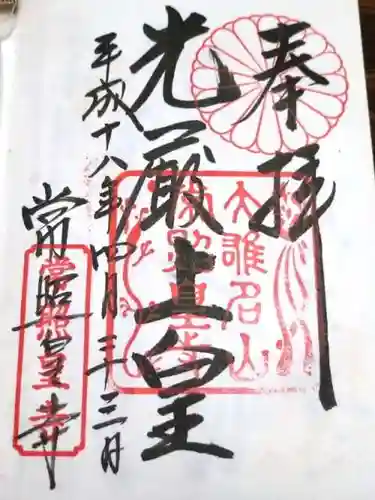 奉拝
光厳上皇
平成十八年四月二十三日
常照皇寺
大雄名山
常照皇寺
常照皇寺